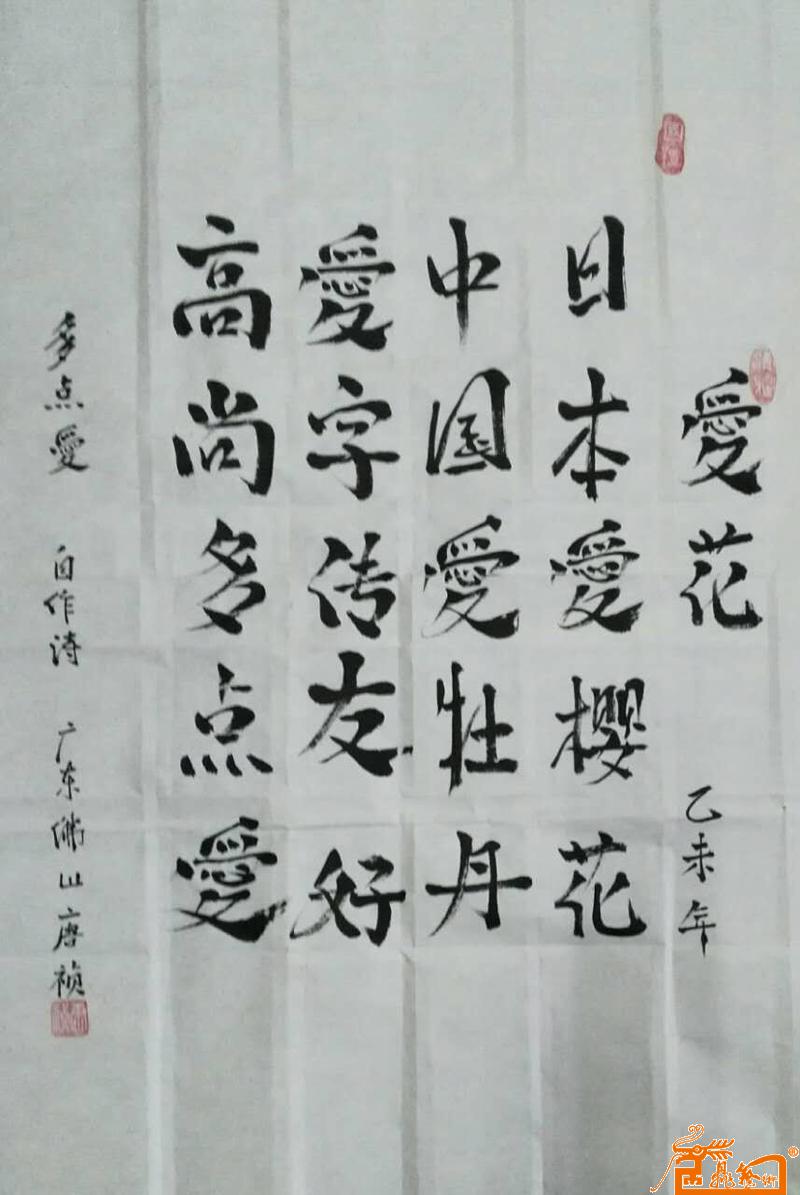 愛花 乙未年
日本愛櫻花
中国愛牡丹
愛字传友好
高尚多点愛
多点愛 自作诗 广东佛山唐祯